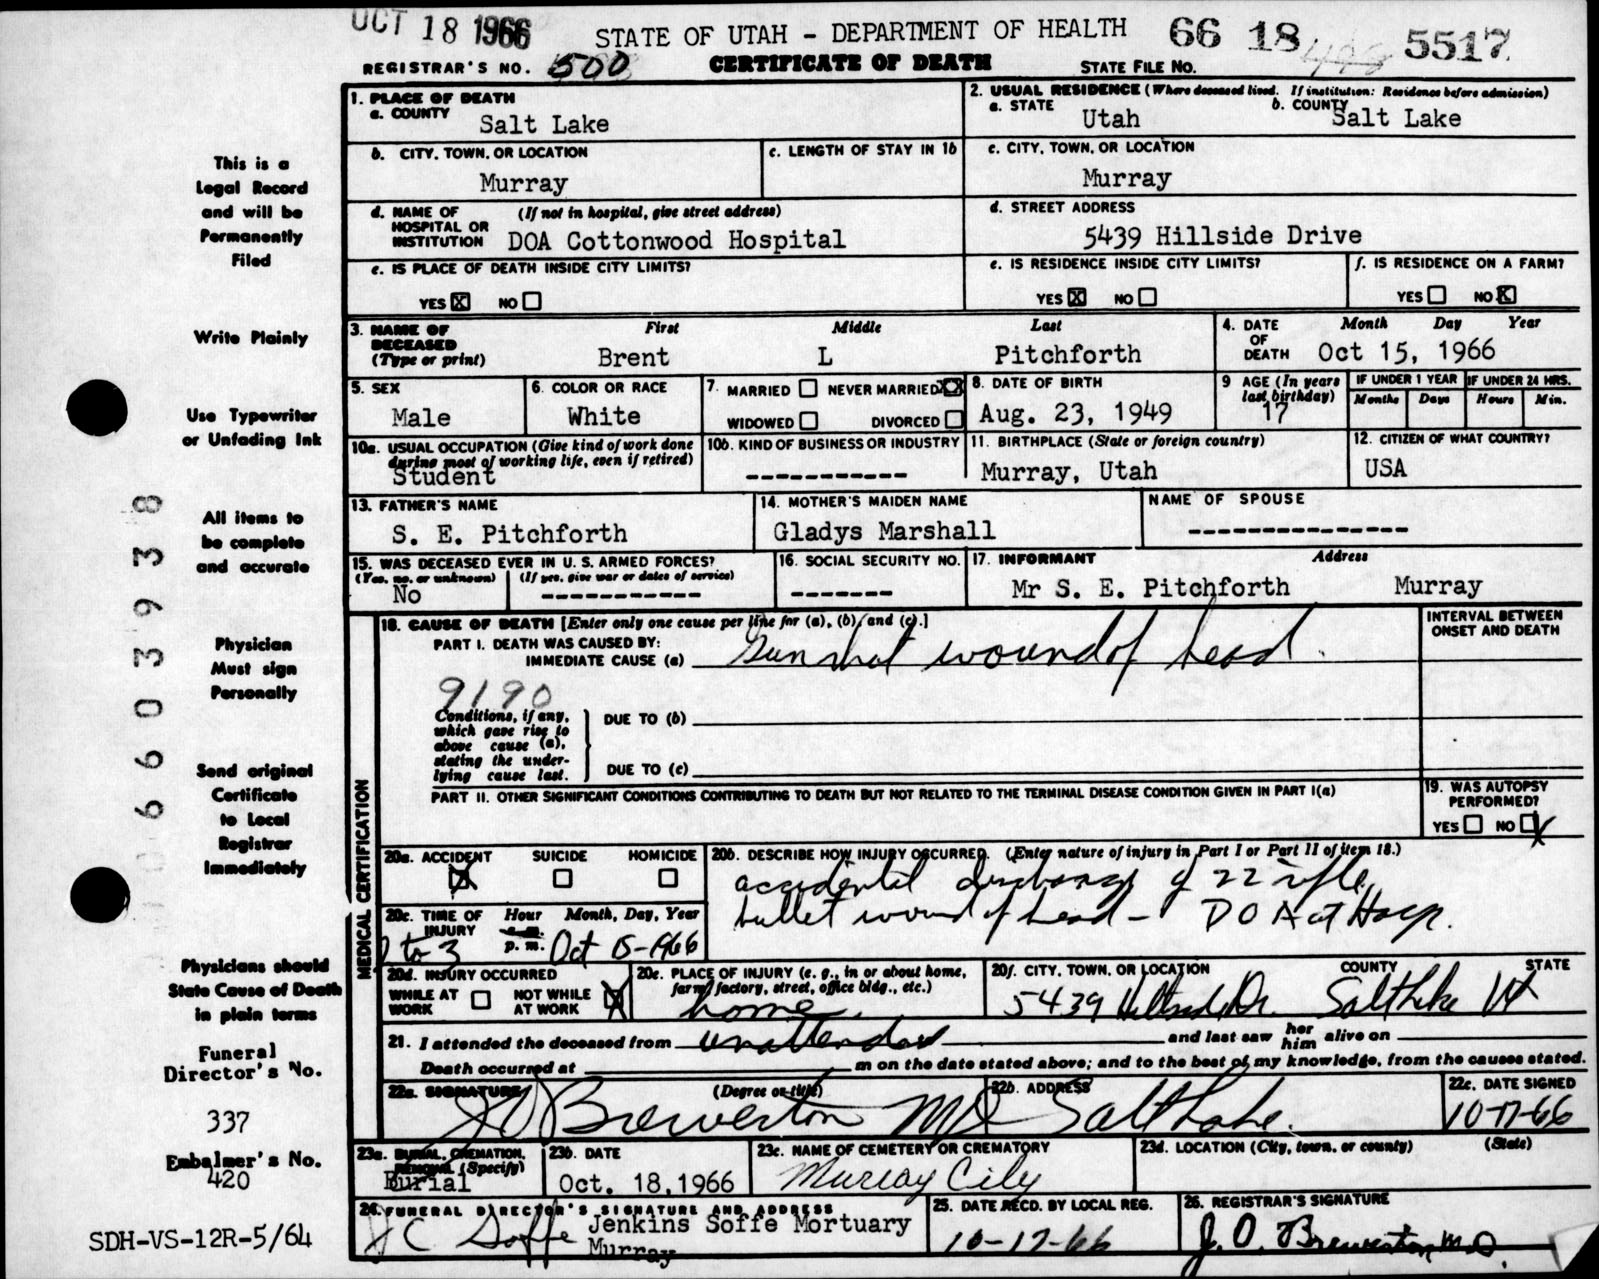 OCT 18 1966
STATE OF UTAH - DEPARTMENT OF HEALTH 66 18 5517
REGISTRAR'S NO. 500 CERTIFICATE OF DEATH STATE FILE NO.
1. PLACE OF DEATH
a. COUNTY Salt Lake
2. USUAL RESIDENCE (Where deceased lived. If institution: Residence before admission)
a. STATE Utah b. COUNTY Salt Lake
b. CITY, TOWN, OR LOCATION Murray
c. LENGTH OF STAY IN 1b
c. CITY, TOWN, OR LOCATION Murray
d. NAME OF HOSPITAL OR INSTITUTION (If not in hospital, give street address) DOA Cottonwood Hospital
d. STREET ADDRESS 5439 Hillside Drive
e. IS PLACE OF DEATH INSIDE CITY LIMITS?
YES X NO
e. IS RESIDENCE INSIDE CITY LIMITS?
YES X NO
f. IS RESIDENCE ON A FARM?
YES NO X
3. NAME OF DECEASED (Type or print) First Middle Last
Brent L Pitchforth
4. DATE OF DEATH Month Day Year
Oct 15, 1966
5. SEX Male
6. COLOR OR RACE White
7. MARRIED NEVER MARRIED X
WIDOWED DIVORCED
8. DATE OF BIRTH Aug. 23, 1949
9 AGE (In years last birthday) 17
IF UNDER 1 YEAR IF UNDER 24 HRS.
Months Days Hours Min.
10a. USUAL OCCUPATION (Give kind of work done during most of working life, even if retired)
Student
10b. KIND OF BUSINESS OR INDUSTRY
-----------
11. BIRTHPLACE (State or foreign country)
Murray, Utah
12. CITIZEN OF WHAT COUNTRY?
USA
13. FATHER'S NAME
S. E. Pitchforth
14. MOTHER'S MAIDEN NAME
Gladys Marshall
NAME OF SPOUSE
---------------
15. WAS DECEASED EVER IN U. S. ARMED FORCES?
(Yes, no, or unknown) (If yes, give war or dates of service)
No -----------
16. SOCIAL SECURITY NO.
-------
17. INFORMANT Address
Mr S. E. Pitchforth Murray
MEDICAL CERTIFICATION
18. CAUSE OF DEATH [Enter only one cause per line for (a), (b), and (c).]
PART I. DEATH WAS CAUSED BY:
IMMEDIATE CAUSE (a) Gun shot wound of head.
INTERVAL BETWEEN ONSET AND DEATH
9190
Conditions, if any, which gave rise to above cause (a), stating the underlying cause last.
DUE TO (b)
DUE TO (c)
PART II. OTHER SIGNIFICANT CONDITIONS CONTRIBUTING TO DEATH BUT NOT RELATED TO THE TERMINAL DISEASE CONDITION GIVEN IN PART I(a)
19. WAS AUTOPSY PERFORMED?
YES NO X
20a. ACCIDENT SUICIDE HOMICIDE
X
20b. DESCRIBE HOW INJURY OCCURRED. (Enter nature of injury in Part I or Part II of item 18.)
accidental discharge of 22 rifle
bullet wound of head - DOA at Hosp.
20c. TIME OF INJURY Hour a. m. p. m. Month, Day, Year
to 3 Oct 15-1966
20d. INJURY OCCURRED
WHILE AT WORK NOT WHILE AT WORK X
20e. PLACE OF INJURY (e. g., in or about home, farm, factory, street, office bldg., etc.)
home.
20f. CITY, TOWN, OR LOCATION COUNTY STATE
5439 Hillside Dr. Salt Lake Ut
21. I attended the deceased from unattended and last saw her him alive on
Death occurred at m on the date stated above; and to the best of my knowledge, from the causes stated.
22a. SIGNATURE (Degree or title) J O Brewerton MD
22b. ADDRESS Salt Lake.
22c. DATE SIGNED 10-17-66
23a. BURIAL, CREMATION, REMOVAL (Specify)
Burial
23b. DATE
Oct. 18, 1966
23c. NAME OF CEMETERY OR CREMATORY
Murray City
23d. LOCATION (City, town, or county) (State)
24. FUNERAL DIRECTOR'S SIGNATURE AND ADDRESS
C Soffe Jenkins Soffe Mortuary
Murray
25. DATE RECD. BY LOCAL REG.
10-17-66
26. REGISTRAR'S SIGNATURE
J. O. Brewerton, M.D.
This is a
Legal Record
and will be
Permanently
Filed
Write Plainly
Use Typewriter
or Unfading Ink
All items to
be complete
and accurate
Physician
Must sign
Personally
Send original
Certificate
to Local
Registrar
Immediately
Physicians should
State Cause of Death
in plain terms
Funeral
Director's No.
337
Embalmer's No.
420
SDH-VS-12R-5/64
6603938